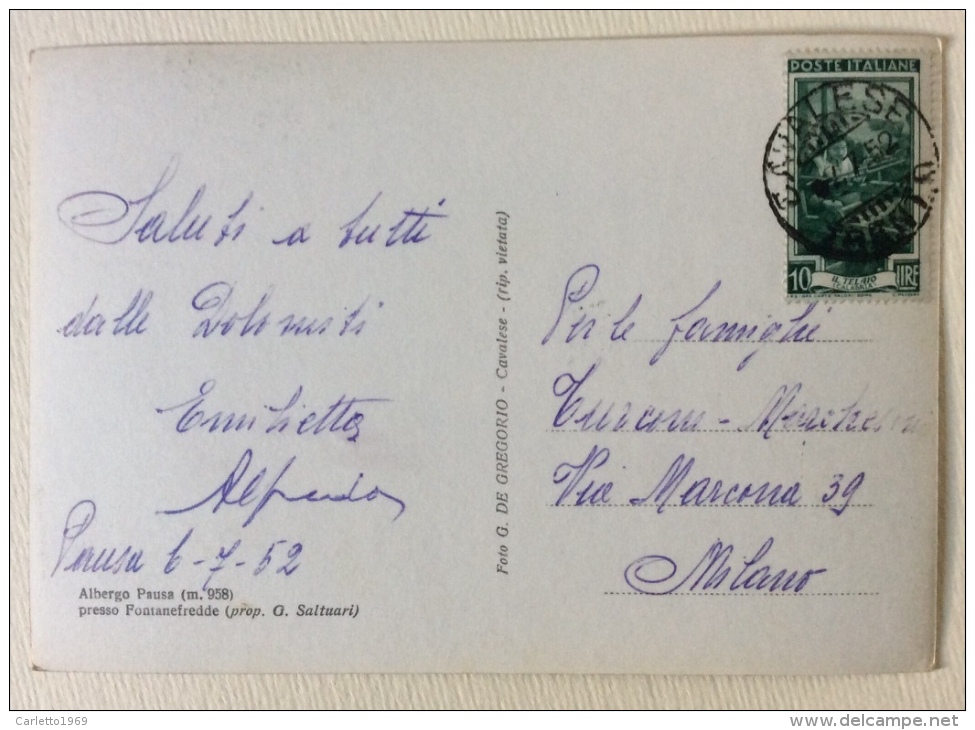 POSTE ITALIANE
CAVALESE
10 LIRE
IL TELAIO
Saluti a tutti
dalle Dolomiti
Emilietta
Alfredo
Pausa 6-7-52
Albergo Pausa (m. 958)
presso Fontanefredde (prop. G. Saltuari)
Foto G. DE GREGORIO - Cavalese - (rip. vietata)
Per le famiglie
Turconi - Marchesini
Via Marcona 39
Milano
Carletto1969
www.delcampe.net